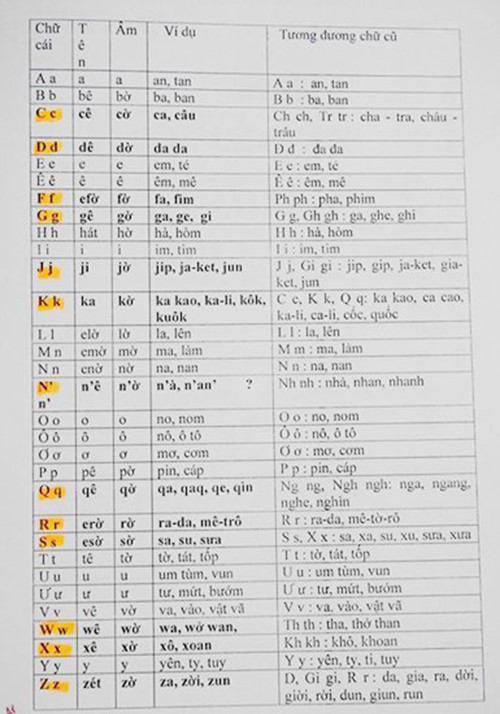 Chữ cái | Tên | Âm | Ví dụ | Tương đương chữ cũ
A a | a | a | an, tan | A a : an, tan
B b | bê | bờ | ba, ban | B b : ba, ban
C c | cê | cờ | ca, câu | Ch ch, Tr tr : cha - tra, châu - trâu
D d | dê | dờ | da da | Đ đ : đa đa
E e | e | e | em, té | E e : em, té
Ê ê | ê | ê | êm, mê | Ê ê : êm, mê
F f | efờ | fờ | fa, fim | Ph ph : pha, phim
G g | gê | gờ | ga, ge, gi | G g, Gh gh : ga, ghe, ghi
H h | hát | hờ | hà, hòm | H h : hà, hòm
I i | i | i | im, tim | I i : im, tim
J j | ji | jờ | jip, ja-ket, jun | J j, Gi gi : jip, gip, ja-ket, gia-ket, jun
K k | ka | kờ | ka kao, ka-li, kôk, kuôk | C c, K k, Q q: ka kao, ca cao, ka-li, ca-li, cốc, quốc
L l | elờ | lờ | la, lên | L l : la, lên
M n | emờ | mờ | ma, làm | M m : ma, làm
N n | enờ | nờ | na, nan | N n : na, nan
N' n' | n'ê | n'ờ | n'à, n'an' ? | Nh nh : nhà, nhan, nhanh
O o | o | o | no, nom | O o : no, nom
Ô ô | ô | ô | nô, ô tô | Ô ô : nô, ô tô
Ơ ơ | ơ | ơ | mơ, cơm | Ơ ơ : mơ, cơm
P p | pê | pờ | pin, cáp | P p : pin, cáp
Q q | qê | qờ | qa, qaq, qe, qin | Ng ng, Ngh ngh: nga, ngang, nghe, nghin
R r | erờ | rờ | ra-da, mê-trô | R r : ra-da, mê-tờ-rô
S s | esờ | sờ | sa, su, sưa | S s, X x : sa, xa, su, xu, sưa, xưa
T t | tê | tờ | tờ, tát, tốp | T t : tờ, tát, tốp
U u | u | u | um tùm, vun | U u : um tùm, vun
Ư ư | ư | ư | tư, mứt, bướm | Ư ư : tư, mứt, bướm
V v | vê | vờ | va, vào, vật vã | V v : va, vào, vật vã
W w | wê | wờ | wa, wở wan, | Th th : tha, thở than
X x | xê | xờ | xô, xoan | Kh kh : khô, khoan
Y y | y | y | yên, ty, tuy | Y y : yên, ty, ti, tuy
Z z | zét | zờ | za, zời, zun | D, Gi gi, R r : da, gia, ra, dời, giời, rời, dun, giun, run